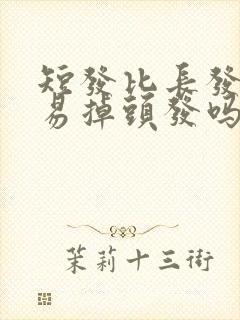 短發比長發
易掉頭發吗
茉莉十三街